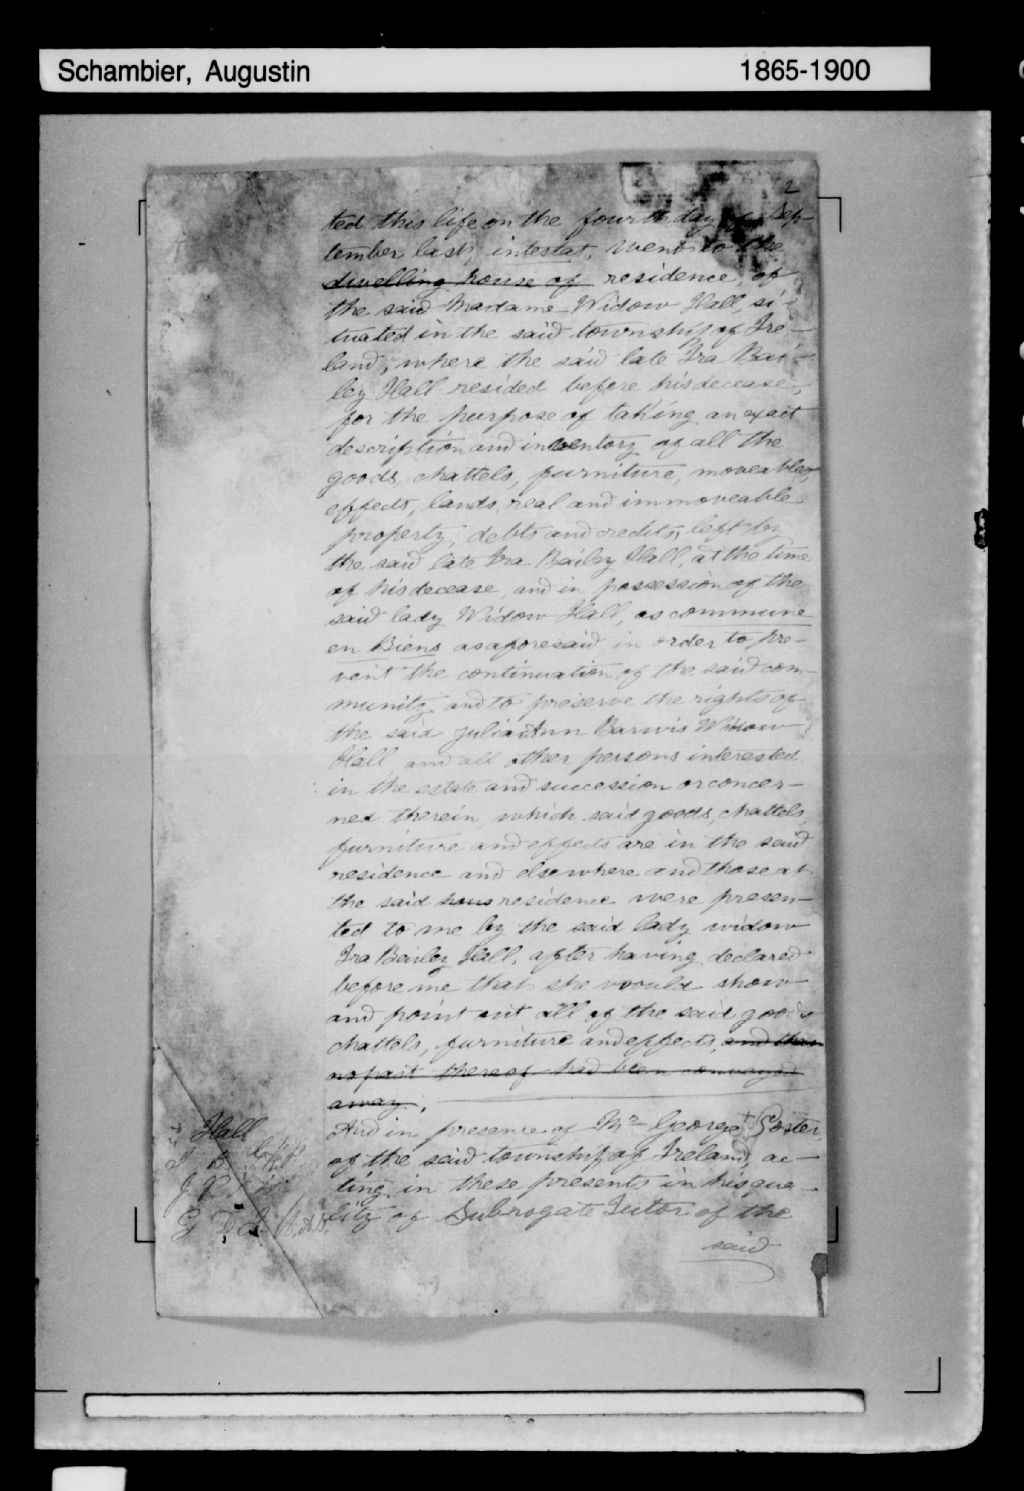 Schambier, Augustin 1865-1900
2
ted this life on the fourth day of Sep-
tember last, intestat, went to the
dwelling house of residence of
the said Madame Widow Hall, si-
tuated in the said township of Ire-
land, where the said late Ira Bai-
ley Hall resided before his decease,
for the purpose of taking an exact
description and inventory of all the
goods, chattels, furniture, moveable
effects, lands, real and immoveable
property, debts and credits, left by
the said late Ira Bailey Hall, at the time
of his decease, and in possession of the
said lady Widow Hall, as commune
en Biens as aforesaid in order to pre-
vent the continuation of the said com-
munity and to preserve the rights of
the said Julia Ann Barwis Widow
Hall and all other persons interested
in the estate and succession or concer-
ned therein, which said goods, chattels,
furniture and effects are in the said
residence and elsewhere and those at
the said hous residence were presen-
ted to me by the said lady widow
Ira Bailey Hall, after having declared
before me that she would show
and point out all of the said goods
chattels, furniture and effects, and that
no part thereof had been conveyed
away.
And in presence of Mr George + Foster
of the said township of Ireland, ac-
ting in these presents in his qua-
lity of Subrogate Tutor of the
said
Hall